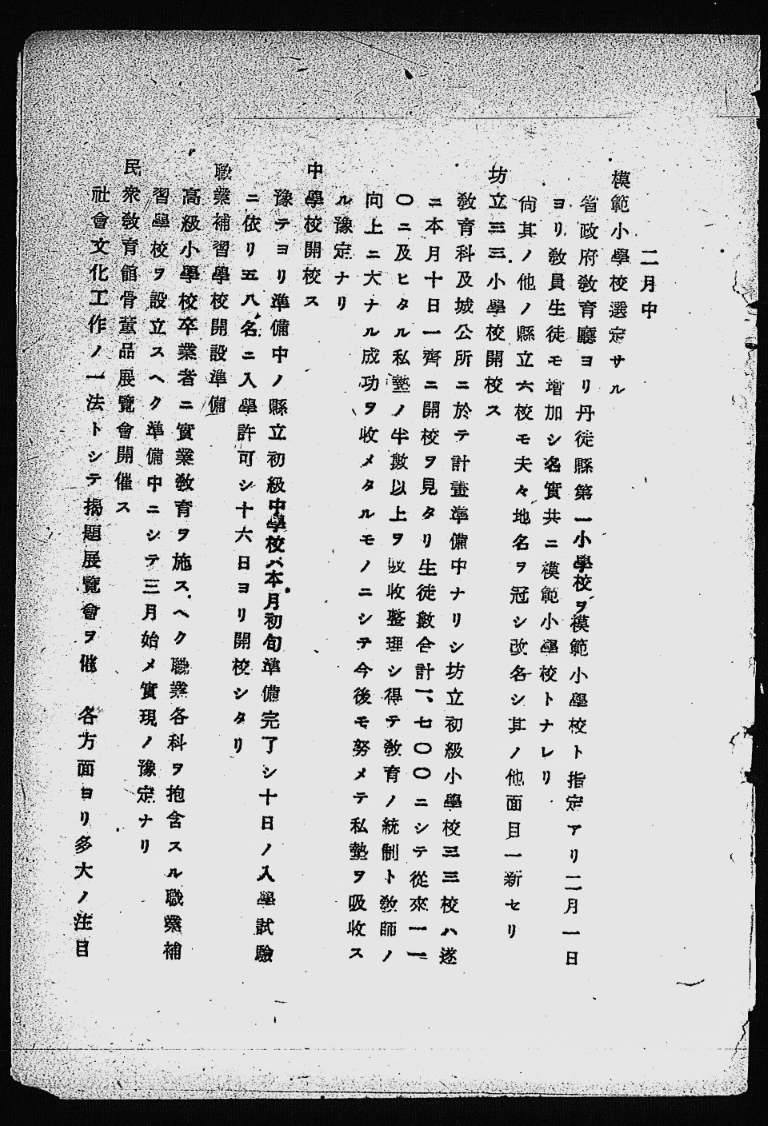 二月中
模範小學校選定サル
省政府敎育廳ヨリ丹徒縣第一小學校ヲ模範小學校ト指定アリ二月一日
ヨリ敎員生徒モ增加シ名實共ニ模範小學校トナレリ
尙其ノ他ノ縣立六校モ夫々地名ヲ冠シ改名シ其ノ他面目一新セリ
坊立三三小學校開校ス
敎育科及城公所ニ於テ計畫準備中ナリシ坊立初級小學校三三校ハ遂
ニ本月十日一齊ニ開校ヲ見タリ生徒數合計一、七〇〇ニシテ從來一一
〇ニ及ヒタル私塾ノ半數以上ヲ吸收整理シ得テ敎育ノ統制ト敎師ノ
向上ニ大ナル成功ヲ收メタルモノニシテ今後モ努メテ私塾ヲ吸收ス
ル豫定ナリ
中學校開校ス
豫テヨリ準備中ノ縣立初級中學校ハ本月初旬準備完了シ十日ノ入學試驗
ニ依リ五八名ニ入學許可シ十六日ヨリ開校シタリ
職業補習學校開設準備
高級小學校卒業者ニ實業敎育ヲ施スヘク職業各科ヲ抱含スル職業補
習學校ヲ設立スヘク準備中ニシテ三月始メ實現ノ豫定ナリ
民衆敎育館骨董品展覽會開催ス
社會文化工作ノ一法トシテ揭題展覽會ヲ催 各方面ヨリ多大ノ注目